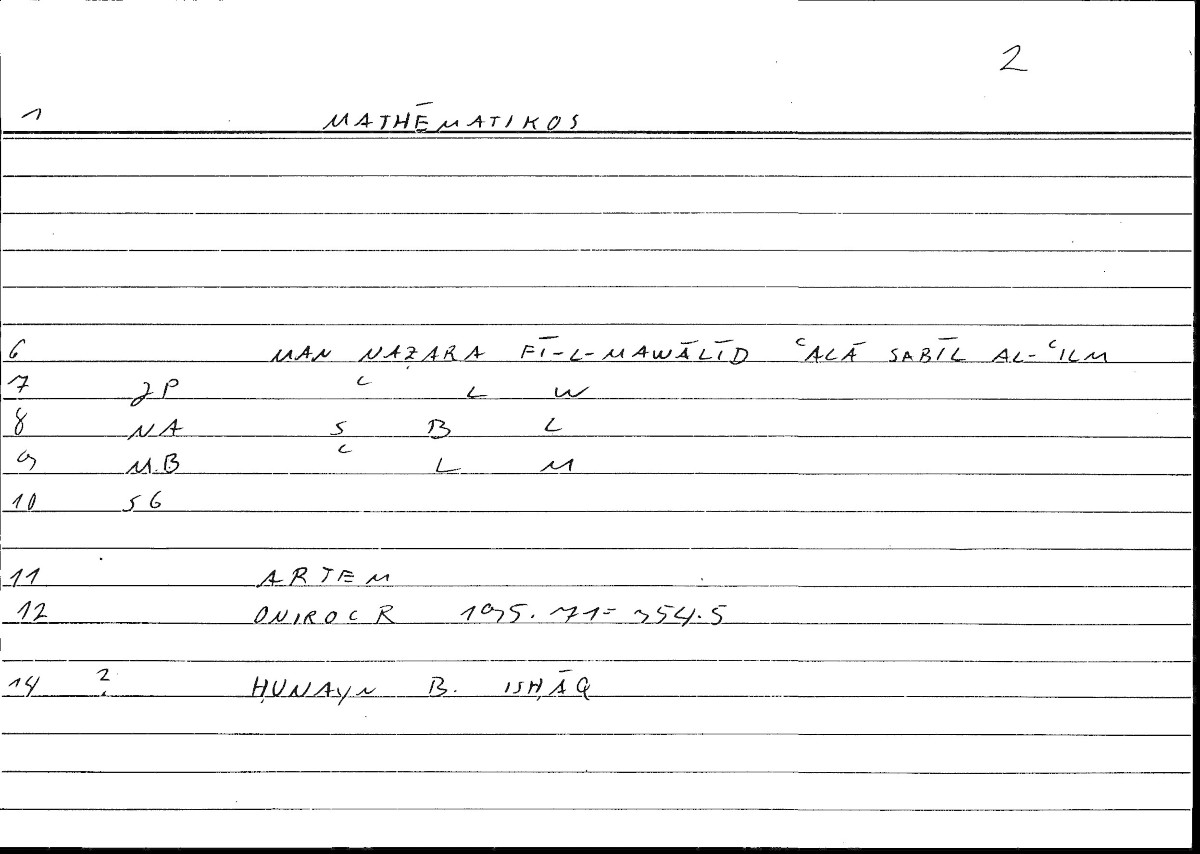 2
1 MATHĒMATIKOS
6 MAN NAẒARA FĪ-L-MAWĀLĪD ʿALĀ SABĪL AL-ʿILM
7 JP ʿ L W
8 NA S B L
9 MB ʿ L M
10 SG
11 ARTEM
12 ONIROCR 195.71= 354.5
14 ? ḤUNAYN B. ISḤĀQ